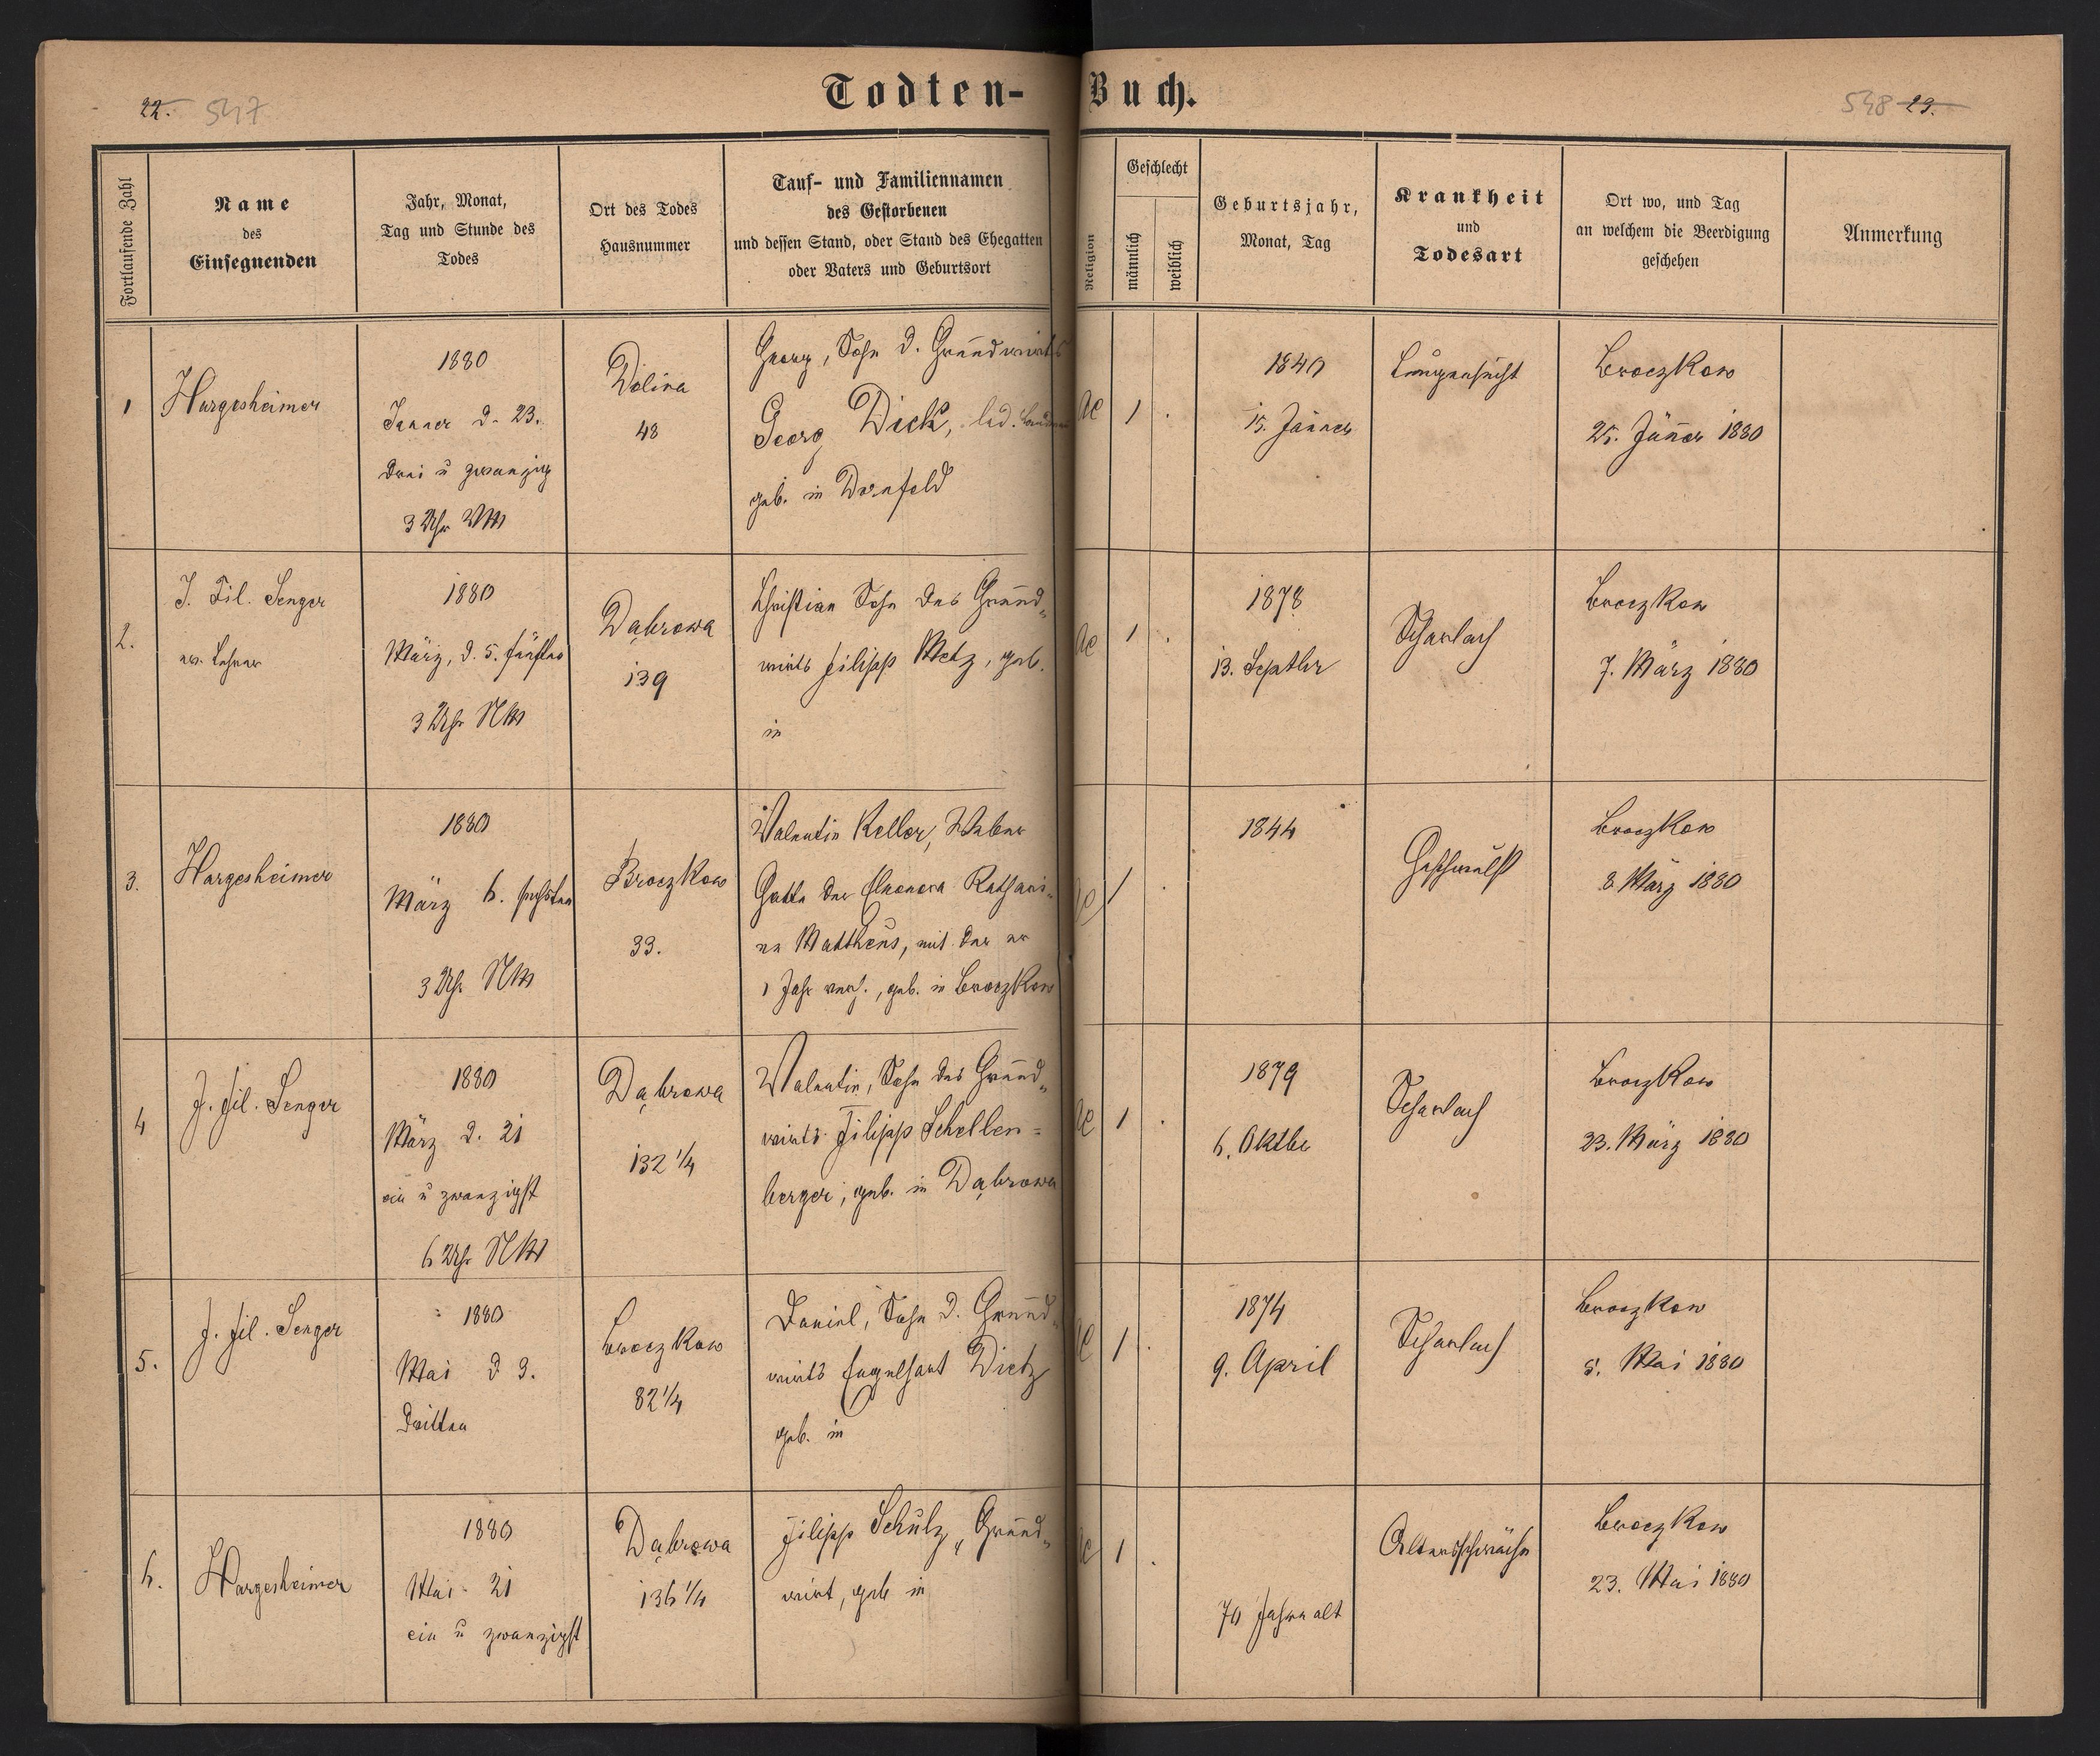 22. 547
Todten-Buch.
548 23.
Fortlaufende Zahl
Name
des
Einsegnenden
Jahr, Monat,
Tag und Stunde des
Todes
Ort des Todes
Hausnummer
Tauf- und Familiennamen
des Gestorbenen
und dessen Stand, oder Stand des Ehegatten
oder Vaters und Geburtsort
Religion
Geschlecht
männlich
weiblich
Geburtsjahr,
Monat, Tag
Krankheit
und
Todesart
Ort wo, und Tag
an welchem die Beerdigung
geschehen
Anmerkung
1
Hargesheimer
1880
Janner d. 23.
drei u zwanzig
3 Uhr VM
Dolina
48
Georg, Sohn d. Grundwirts
Georg Dick, led.
geb. in Dornfeld
AC
1
.
1840
15. Jänner
Lungensucht
Broczkow
25. Jänner 1880
2.
J. Fil. Senger
ev. Lehrer
1880
März, d. 5. fünften
3 Uhr NM
Dąbrowa
139
Christian Sohn des Grund„
wirts Filipp Metz, geb.
in
AC
1
.
1878
13. Septbr
Scharlach
Broczkow
7. März 1880
3.
Hargesheimer
1880
März 6. sechsten
3 Uhr NM
Broczkow
33.
Valentin Keller, Weber
Gatte der Eleonora Kathari-
na Mattheus, mit der er
1 Jahr verh., geb. in Broczkow
AC
1
.
1844
Geschwulst
Broczkow
8 März 1880
4
J. Fil. Senger
1880
März d. 21
ein u zwanzigst
6 Uhr NM
Dąbrowa
132 1/4
Valentin, Sohn des Grund„
wirts Filipp Schellen=
berger, geb. in Dąbrowa
AC
1
.
1879
6. Oktbr
Scharlach
Broczkow
23. März 1880
5.
J. Fil. Senger
1880
Mai d 3.
dritten
Broczkow
82 1/4
Daniel, Sohn d. Grund„
wirts Engelhart Dietz
geb. in
AC
1
.
1874
9. April
Scharlach
Broczkow
5. Mai 1880
6.
Hargesheimer
1880
Mai 21
ein u zwanzigst
Dąbrowa
136 1/4
Filipp Schulz, Grund„
wirt, geb in
AC
1
.
70 Jahre alt
Altersschwäche
Broczkow
23. Mai 1880